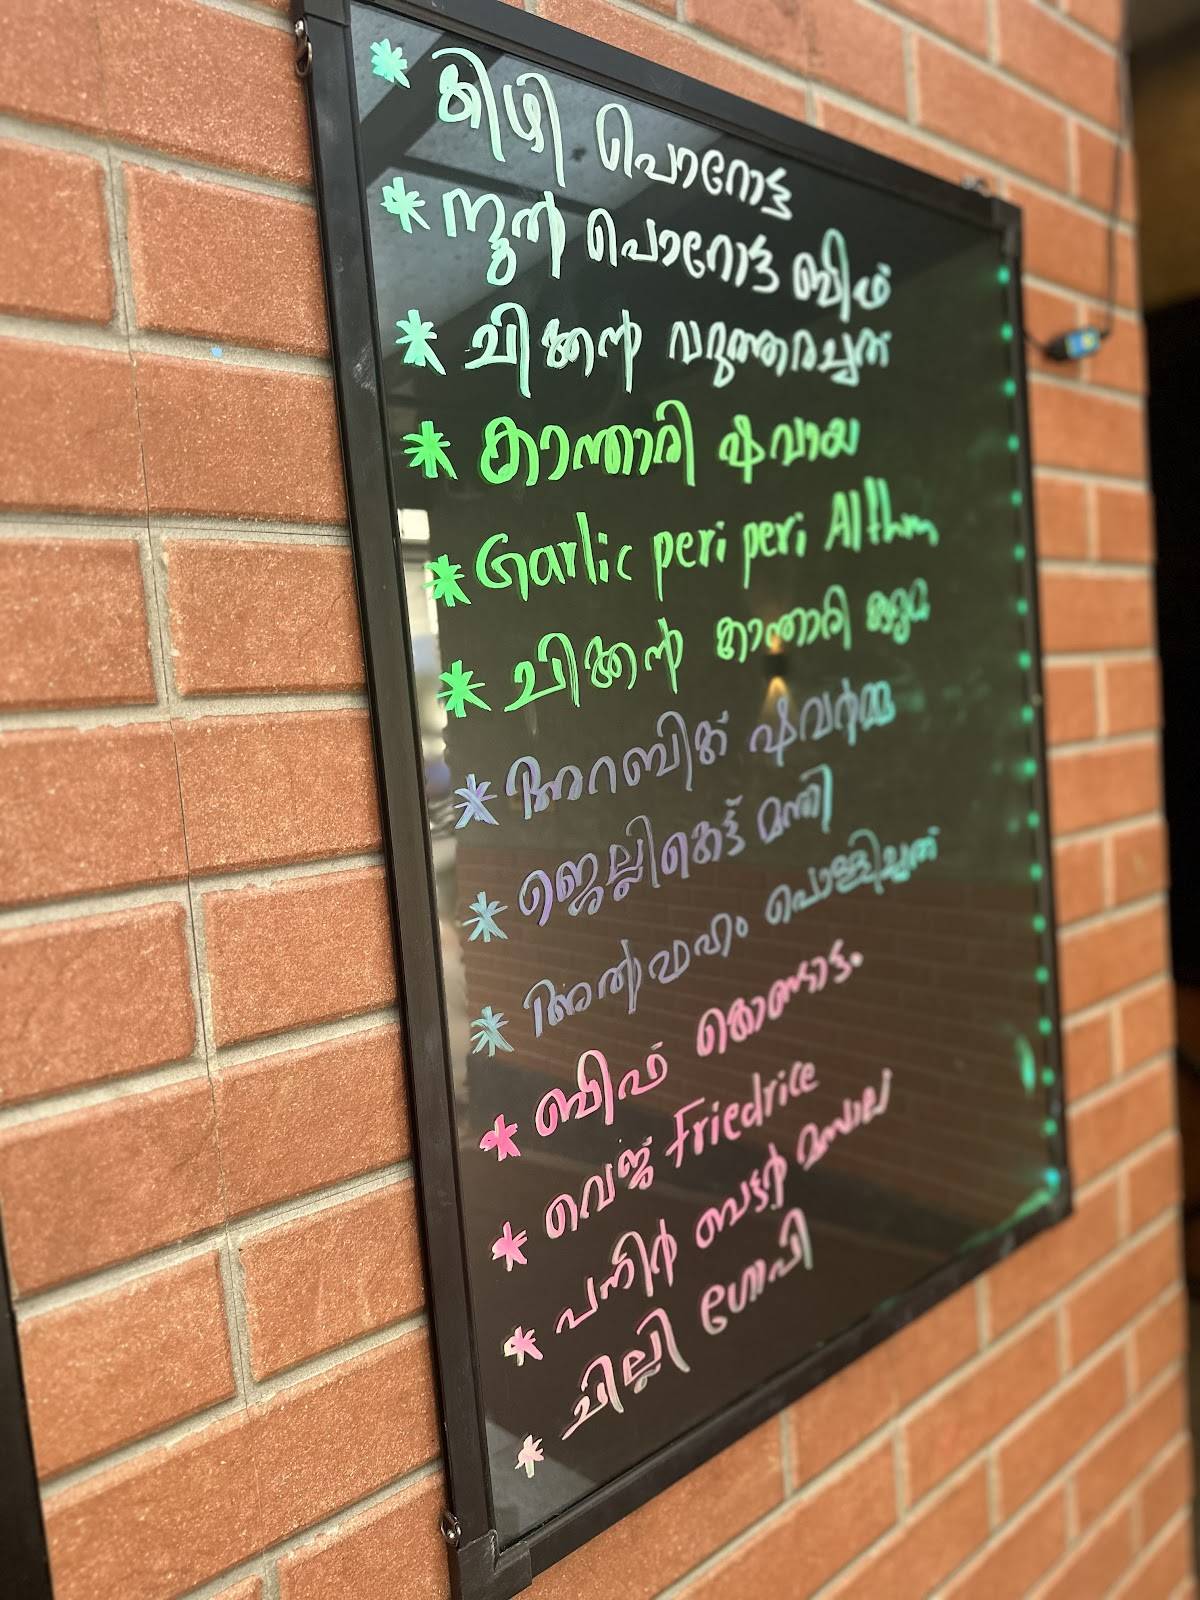 * കിഴി പൊറോട്ട
* നൂൽ പൊറോട്ട ബീഫ്
* ചിക്കൻ വറുത്തരച്ചത്
* കാന്താരി ഷവായ
* Garlic peri peri Alfham
* ചിക്കൻ കാന്താരി കുറുമ
* അറബിക് ഷവർമ്മ
* ജെല്ലികെട്ട് മന്തി
* അൽഫഹം പൊള്ളിച്ചത്
* ബീഫ് കൊണ്ടാട്ടം
* വെജ് Friedrice
* പനീർ ബട്ടർ മസാല
* ചില്ലി ഗോപി